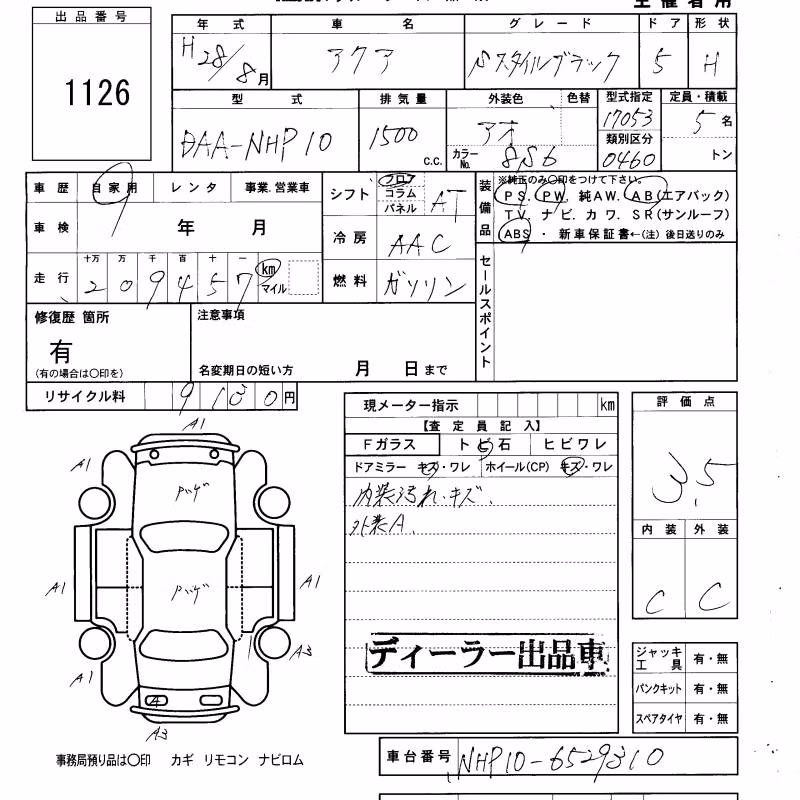 出品番号
1126
年式 車名 グレード ドア 形状
H28/8月 アクア Sスタイルブラック 5 H
型式 排気量 外装色 色替 型式指定 定員・積載
DAA-NHP10 1500 c.c. アオ 17053 5名
カラーNo. 8S6 類別区分 0460 トン
車歴 自家用 レンタ 事業.営業車
車検 年 月
走行 十万 万 千 百 十 一 km マイル
2 0 9 4 5 7
シフト フロア コラム パネル AT
冷房 AAC
燃料 ガソリン
装備品
※純正のみ〇印をつけて下さい。
PS. PW. 純AW. AB(エアバック)
TV. ナビ. カワ. SR(サンルーフ)
ABS ・ 新車保証書←(注) 後日送りのみ
セールスポイント
修復歴 箇所
有
(有の場合は〇印を)
注意事項
名変期日の短い方 月 日まで
リサイクル料 9130円
現メーター指示 km
【査定員記入】
Fガラス トビ石 ヒビワレ
ドアミラー キズ・ワレ ホイール(CP) キズ・ワレ
内装汚れ・キズ.
外装A.
ディーラー出品車
評価点
3.5
内装 外装
C C
ジャッキ工具 有・無
パンクキット 有・無
スペアタイヤ 有・無
A1
A1 A1
A1 A1
A1 A3
A3
事務局預り品は〇印 カギ リモコン ナビロム
車台番号 NHP10-6529310